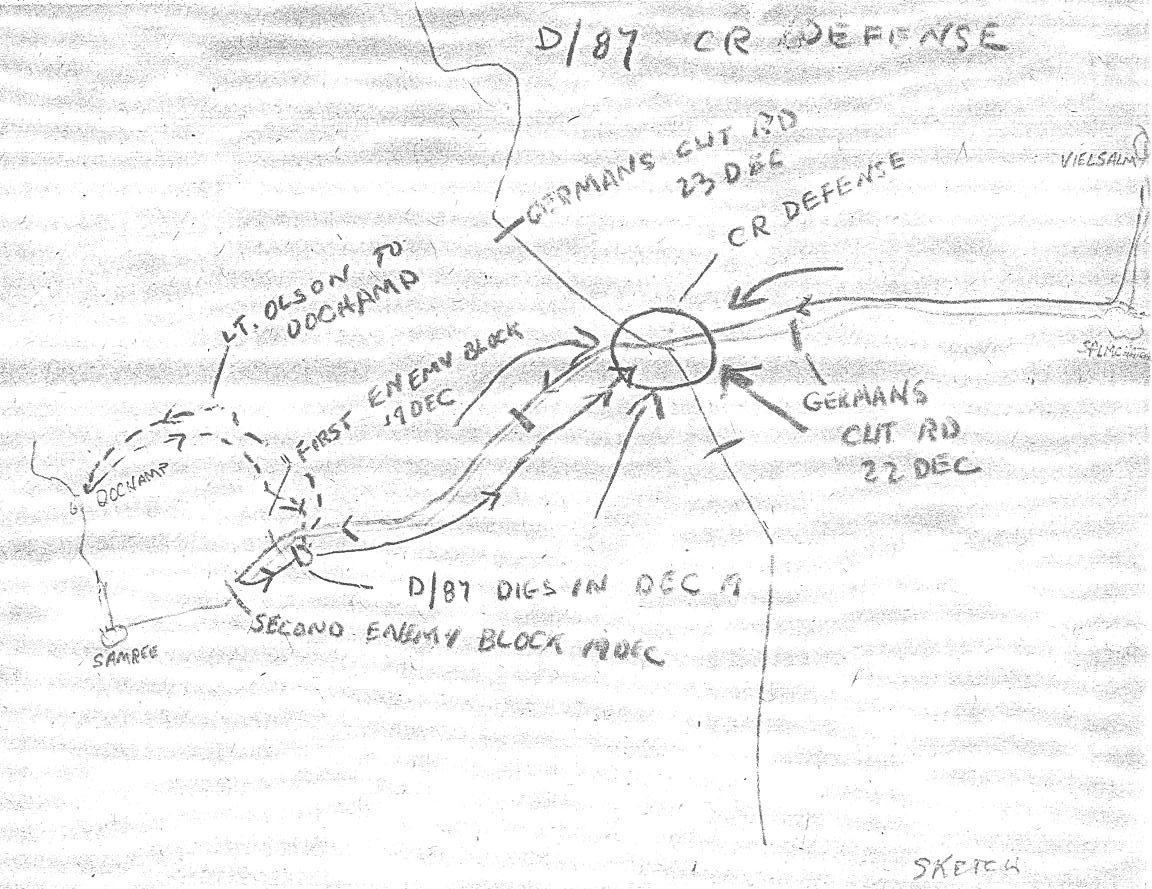 D/87 CR DEFENSE
GERMANS CUT RD
23 DEC
CR DEFENSE
VIELSALM
LT. OLSON TO
DOCHAMP
FIRST ENEMY BLOCK
19 DEC
GERMANS
CUT RD
22 DEC
DOCHAMP
D/87 DIGS IN DEC 19
SECOND ENEMY BLOCK 19 DEC
SAMREE
SKETCH